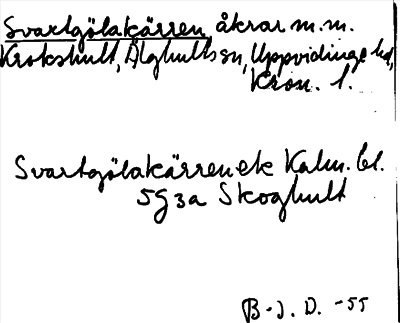 Svartgölakärren, åkrar m.m.
Krokshult, Älghults sn, Uppvidinge hd,
Kron. l.
Svartgölakärren ek Kalm. bl.
5G3a Skoghult
B-J. D. -55